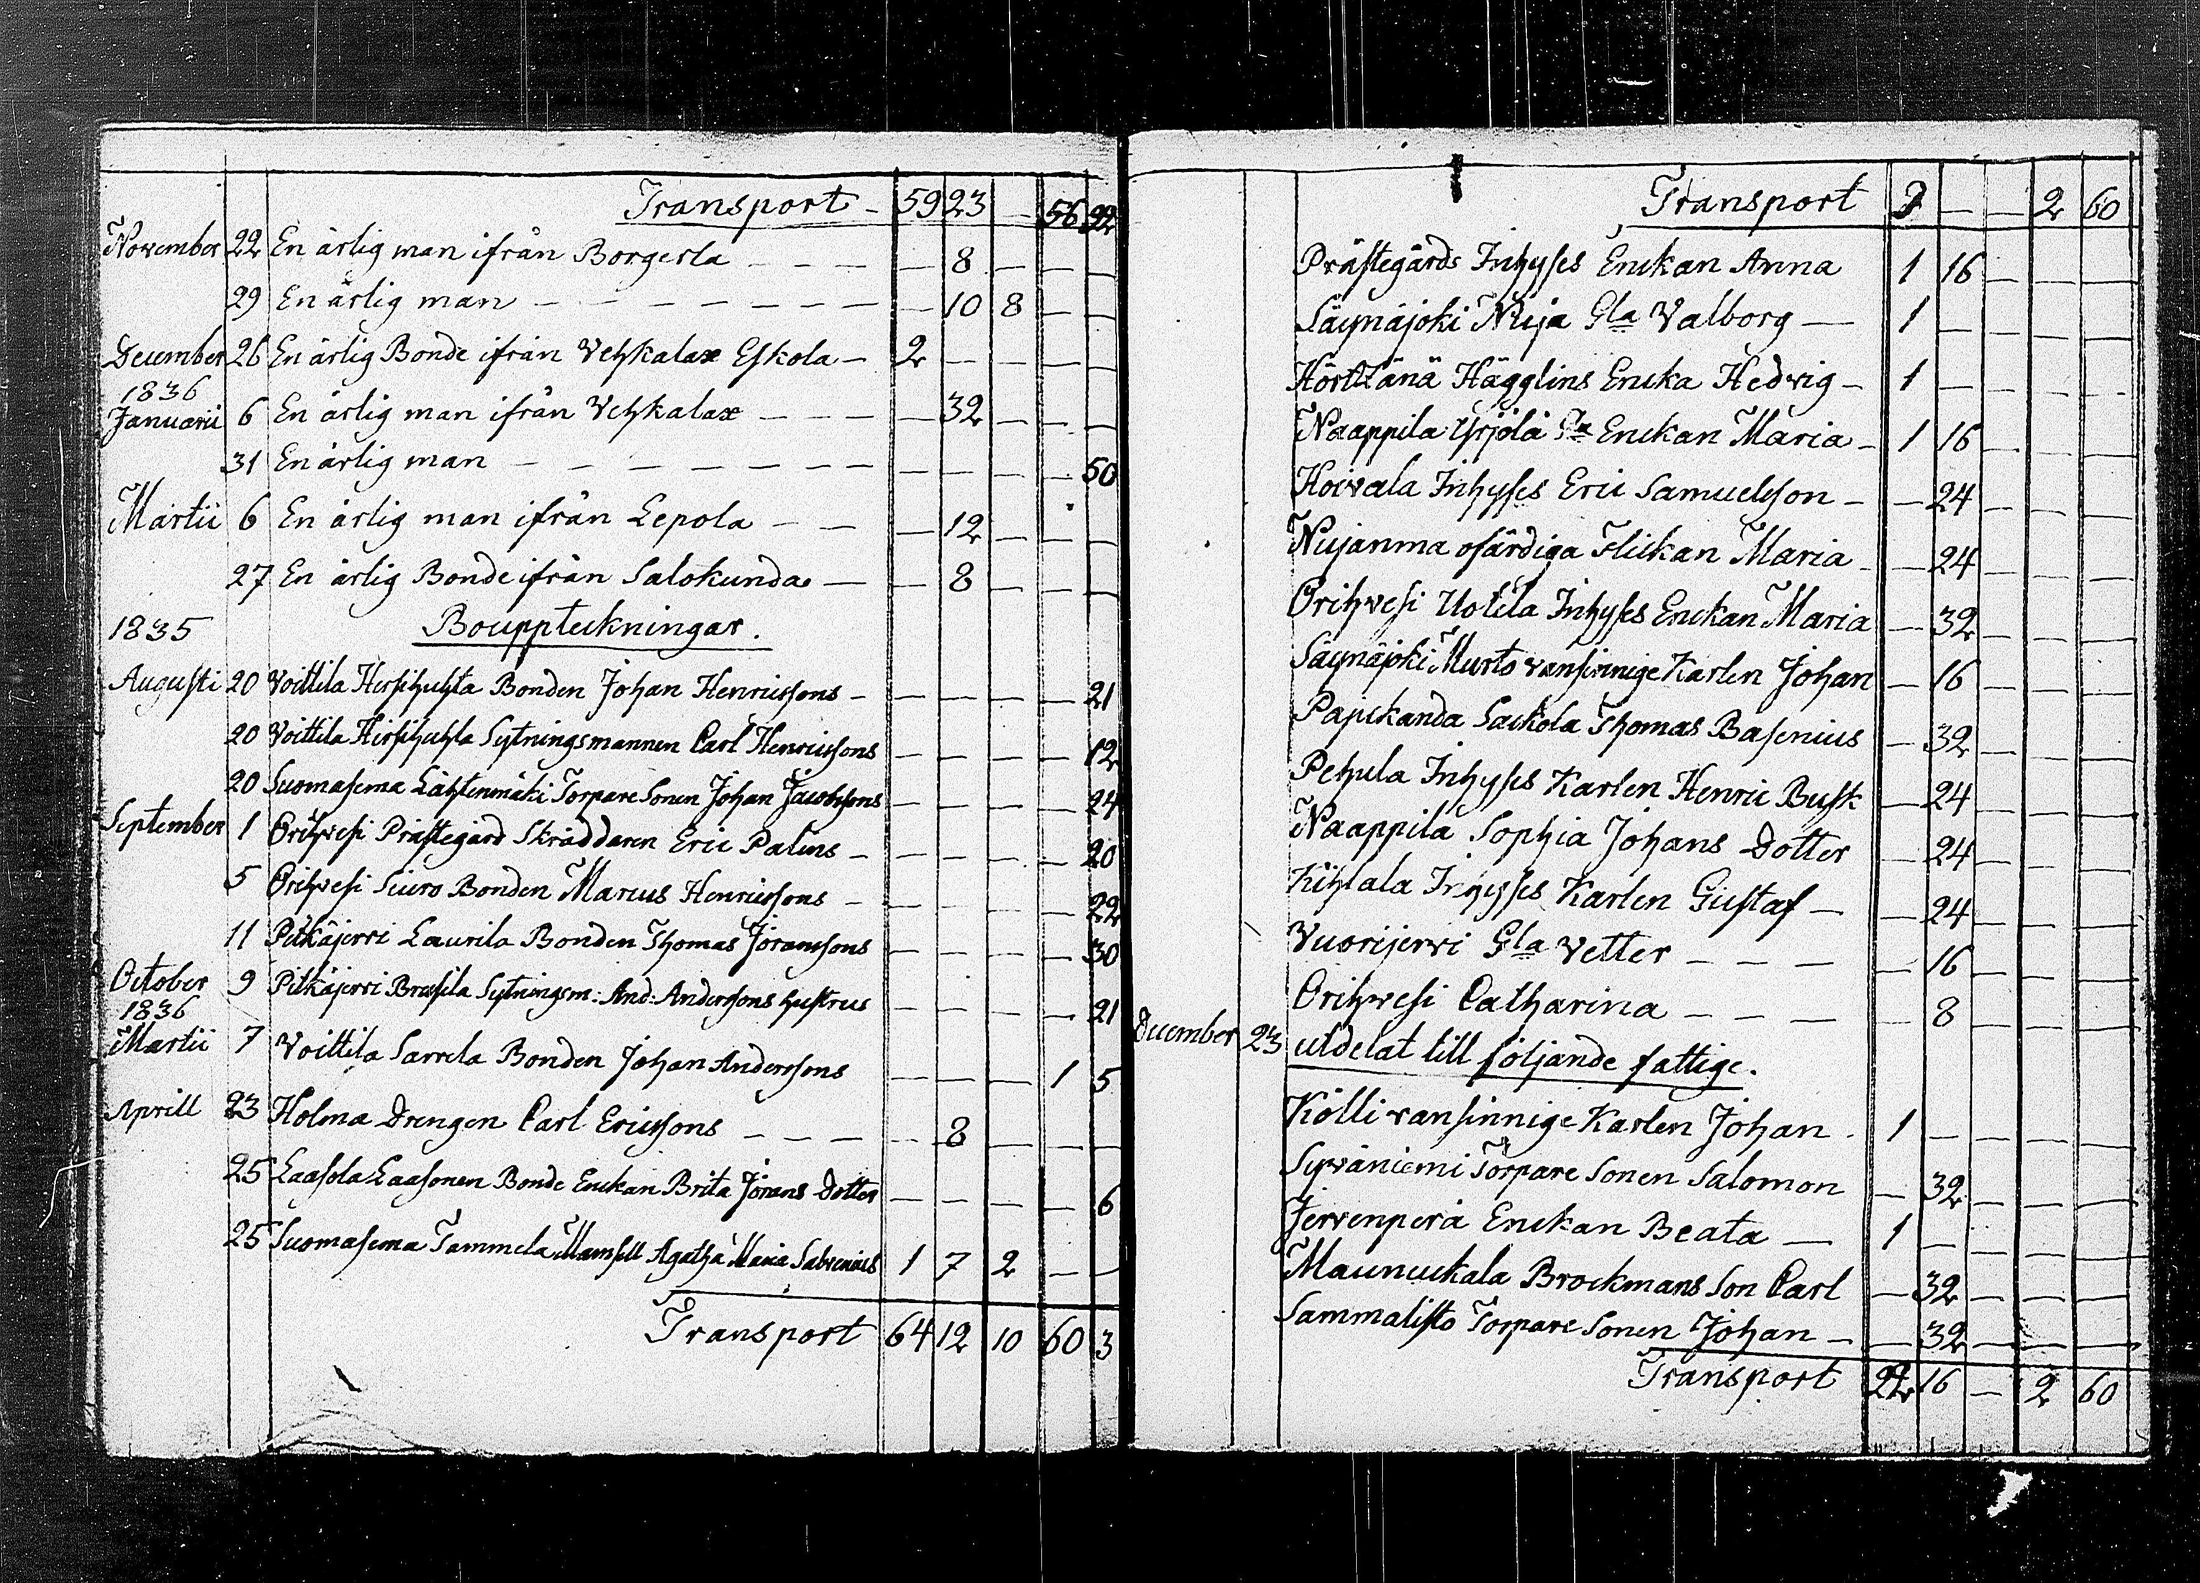 Transport - 59 23 - 56 92
November 22 En ärlig man ifrån Borgerla - - - - 8 - - -
29 En ärlig man - - - - - - - - 10 8 - -
December 26 En ärlig Bonde ifrån Vehkalax Eskola - 2 - - - -
1836
Januarii 6 En ärlig man ifrån Vehkalax - - - - 32 - - -
31 En ärlig man - - - - - - - - - - - - 50
Martii 6 En ärlig man ifrån Lepola - - - 12 - - -
27 En ärlig Bonde ifrån Salokunda - - 8 - - -
1835 Bouppteckningar.
Augusti 20 Voittila Hersihuhta Bonden Johan Henricssons - - - - - 21
20 Voittila Hirsihuhta Sytningsmannen Carl Henricssons - - - - 12
20 Suomasema Lähtenmäki Torpare Sonen Johan Jacobssons - - - - 24
September 1 Orihvesi Prästegård Skräddaren Eric Palins - - - - - 20
5 Orihvesi Siuro Bonden Marcus Henricssons - - - - - 22
11 Pitkäjervi Laurila Bonden Thomas Jöranssons - - - - 30
October 9 Pitkäjervi Brusila Sytningsm: And: Anderssons hustrus - - - - 21
1836
Martii 7 Voittila Sarrela Bonden Johan Anderssons - - - 1 5
Aprill 23 Holma Drengen Carl Ericssons - - - - 8 - - -
25 Laasola Laasonen Bonde Enckan Brita Jörans Dotter - - - - 6
25 Suomasema Tammela Mamsell Agatha Maria Sabrenius 1 7 2 - -
Transport 64 12 10 60 3
Transport 7 - - 2 60
Prästegårds Inhyses Enckan Anna 1 16 - - -
Säynäjoki Nuja Gla Valborg - 1 - - - -
Hörtzänä Hägglins Encka Hedvig - 1 - - - -
Naappila Yrjölä Gla Enckan Maria - 1 16 - - -
Hoivala Inhyses Eric Samuelsson - - 24 - - -
Nujanma ofärdiga Flickan Maria - - 24 - - -
Orihvesi Uotila Inhyses Enckan Maria - 32 - - -
Säynäjoki Murto vansinnige Karlen Johan - 16 - - -
Papickanda Sackola Thomas Basenius - 32 - - -
Pehula Inhyses Karlen Henric Busk - 24 - - -
Naappila Sophia Johans Dotter - 24 - - -
Kihlala Inhyses Karlen Gustaf - - 24 - - -
Vuorijervi Gla Vetter - - - - 16 - - -
Orihvesi Catharina - - - - 8 - - -
December 23 utdelat till följande fattige.
Kölli vansinnige Karlen Johan . 1 - - - -
Syväniemi Torpare Sonen Salomon - 32 - - -
Jervenperä Enckan Beata - 1 - - - -
Mauncuckala Brockmans Son Carl - 32 - - -
Sammalisto Torpare Sonen Johan - - 32 - - -
Transport 22 16 - 2 60